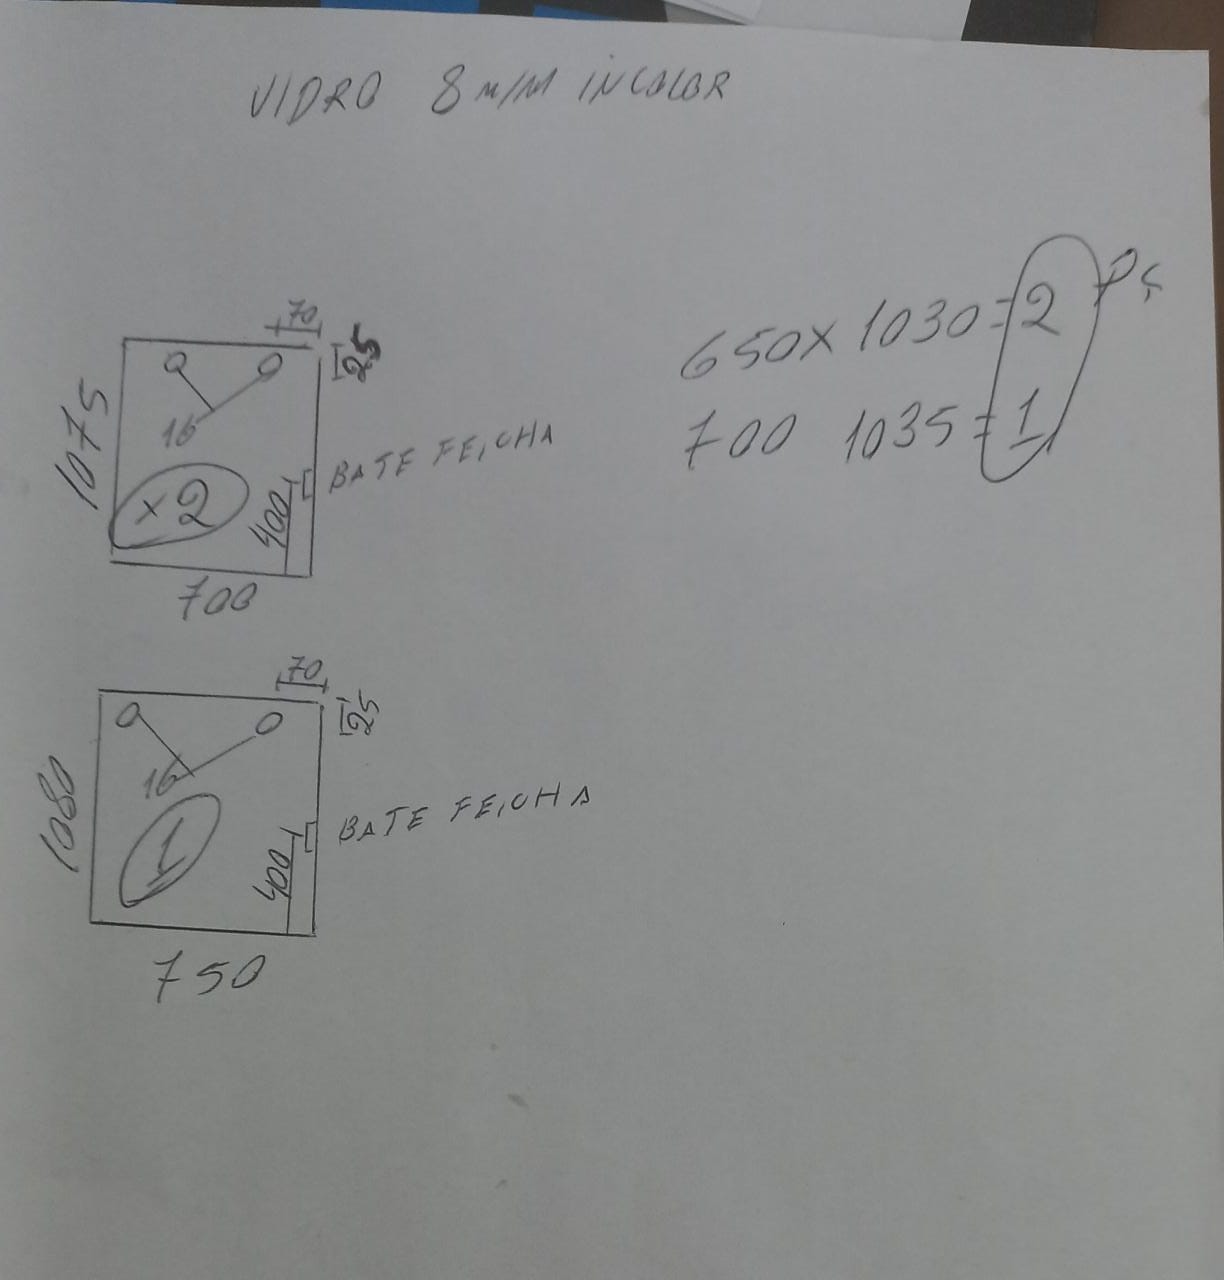 VIDRO 8 M/M INCOLOR
70
25
1075
16
x 2
400
BATE FEICHA
700
650 x 1030 = 2 PÇ
700 1035 = 1
70
25
1080
16
1
400
BATE FEICHA
750